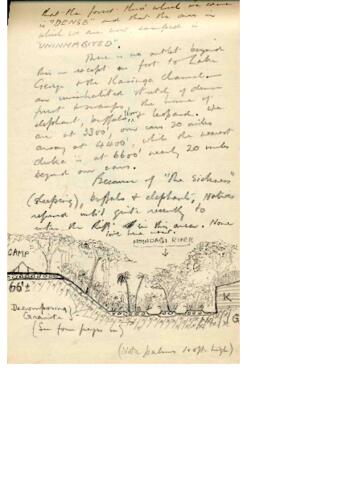 that the forest thro' which we came
is "DENSE" and that the area in
which we are now camped is
"UNINHABITED".
There is no outlet beyond
this - except on foot to Lake
George & the Kazinga channel -
an uninhabited study of dense
forest & swamps, the home of
elephant, buffalo, & leopard. We
are at 3300', our cars 20 miles
away at 4400', while the nearest
is at 6600' nearly 20 miles
beyond our cars.
Because of "the Sickness"
(Sleeping), buffalo & elephant, Natives
refused until quite recently to
enter the Rift in this area. None
live here now.
CAMP
RIVER
66'±
K
G
Decomposing
Granite
(See four pages on)
(Note palms 100ft high)